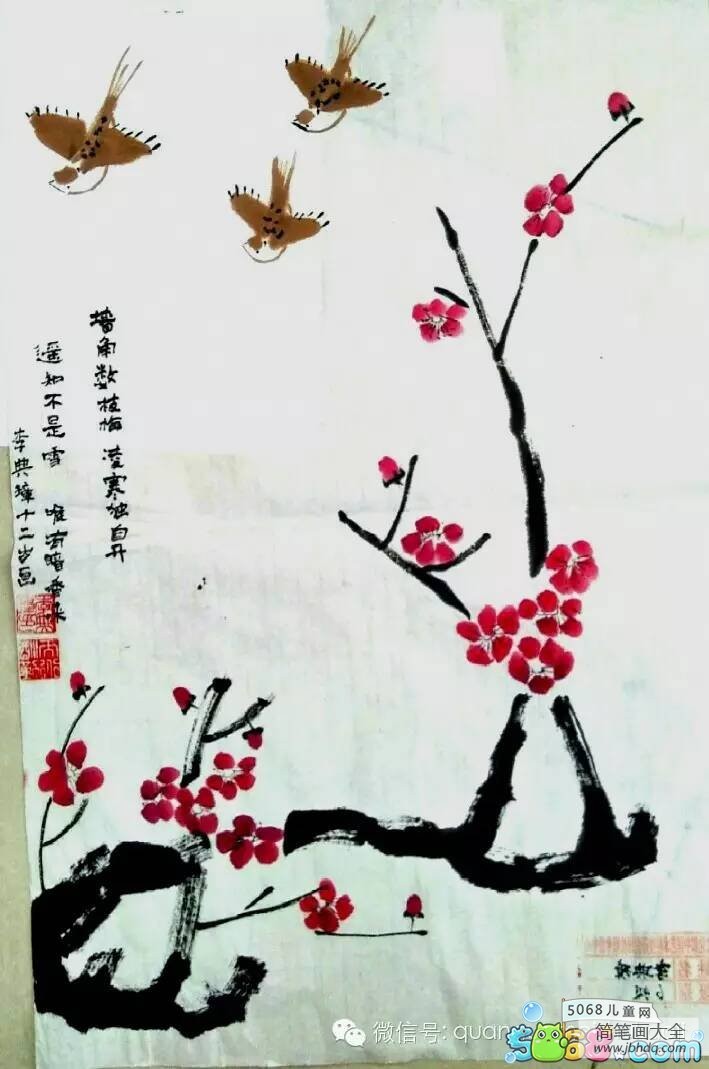 墙角数枝梅 凌寒独自开
遥知不是雪 唯有暗香来
李典 十二岁画
微信号: quan
5068儿童网
简笔画大全
www.jbhdq.com